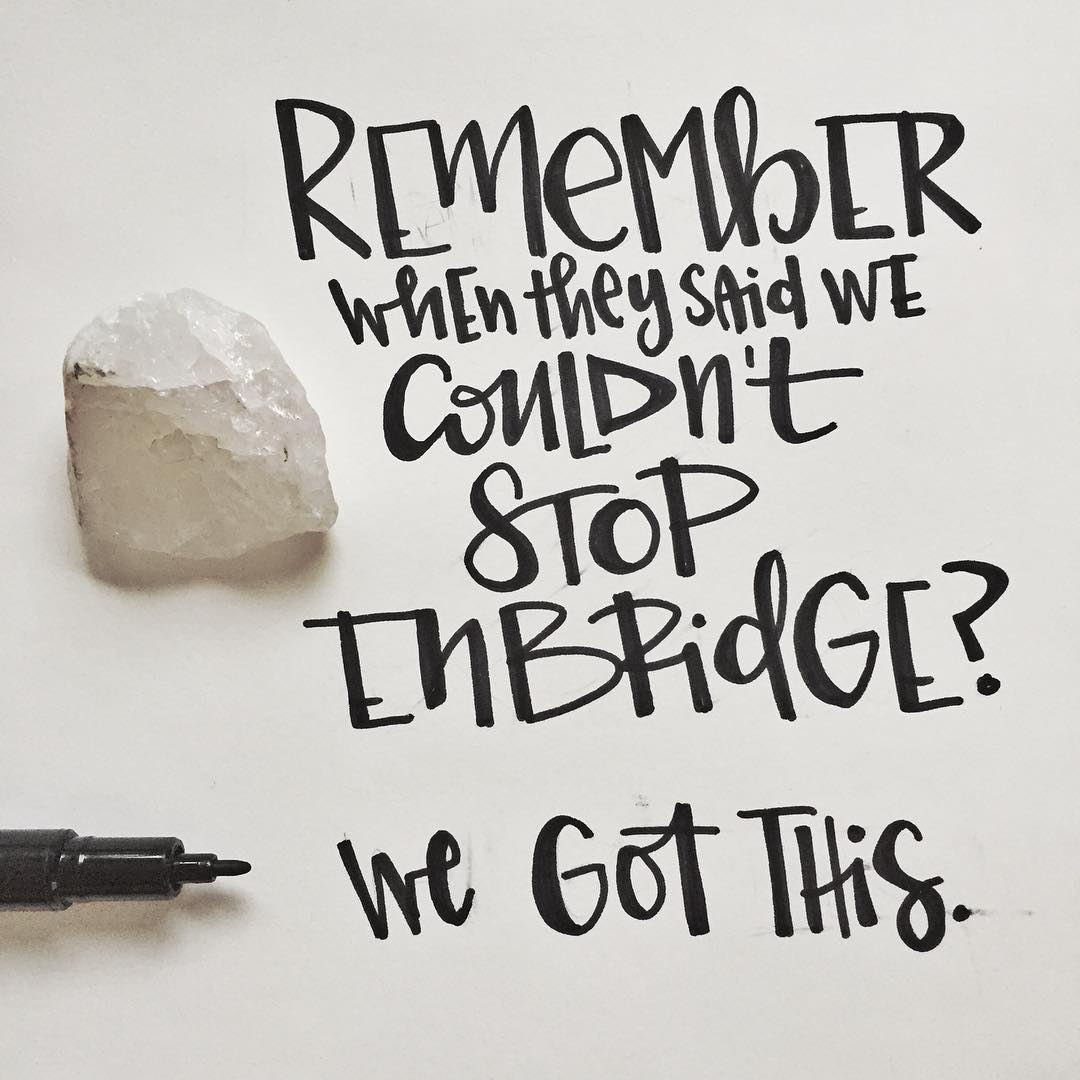 REMEMBER
WHEN THEY SAID WE
COULDN'T
STOP
ENBRIDGE?
WE GOT THIS.